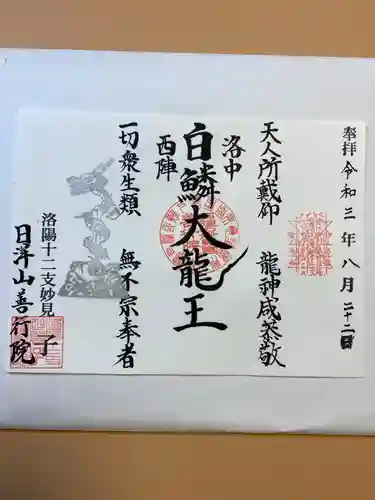 奉拝 令和三年八月二十二日
天人所戴仰 龍神咸恭敬
洛中
白鱗大龍王
西陣
一切衆生類 無不宗奉者
洛陽十二支妙見 子
日洋山善行院